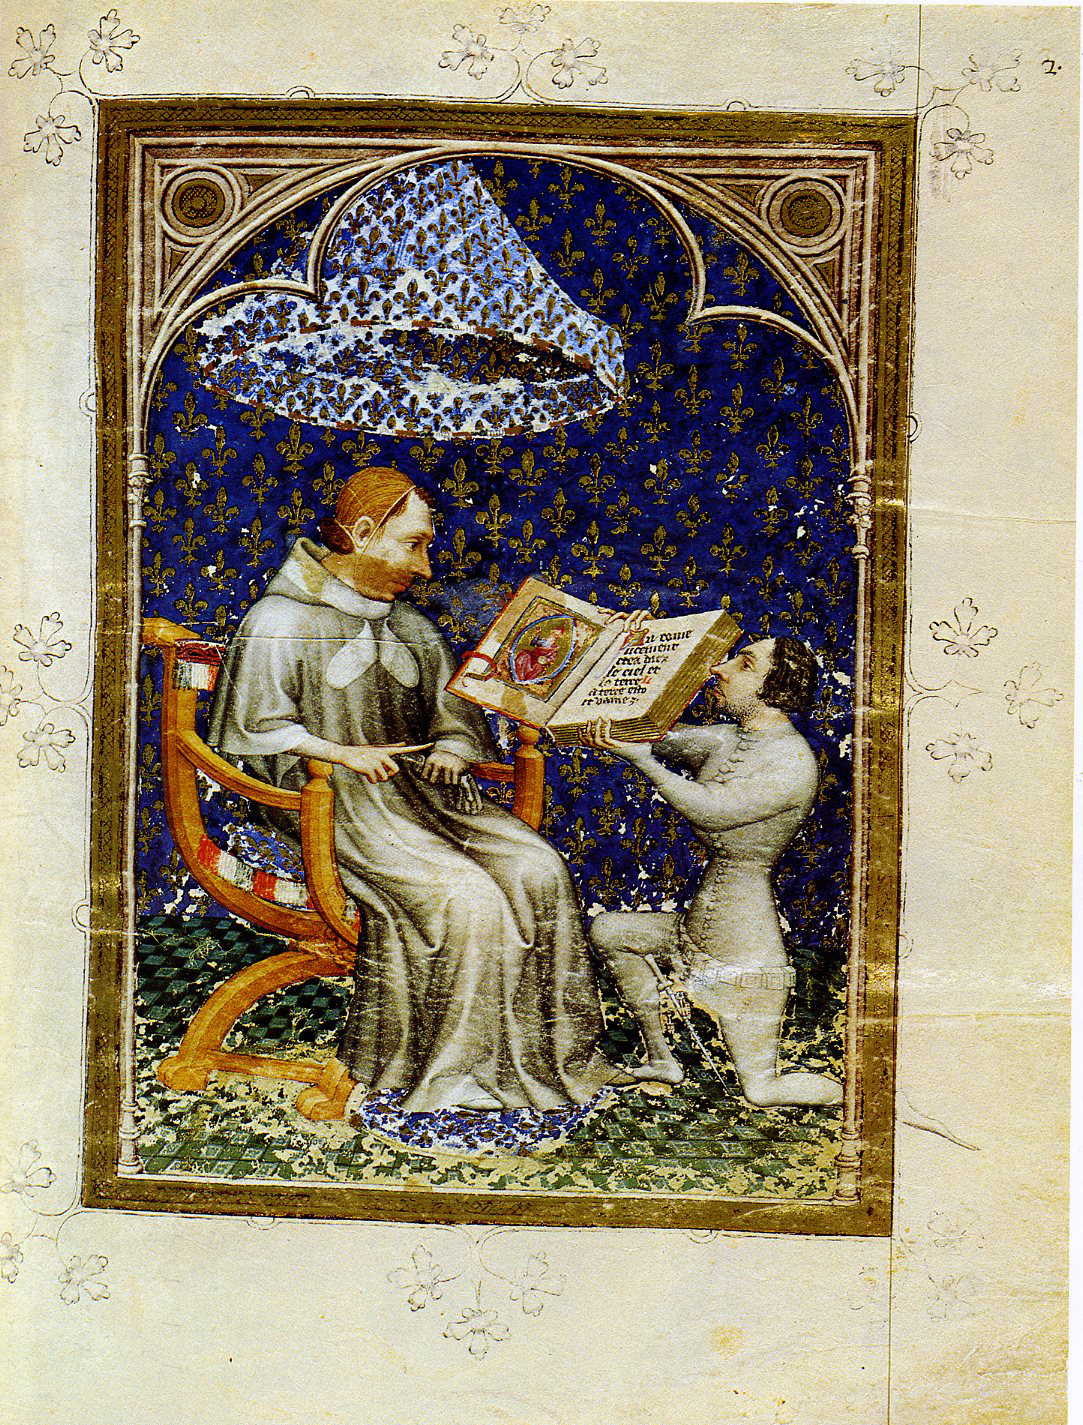 2.
u come
ncement
crea diex
le ciel et
la terre
terre esto
vaine